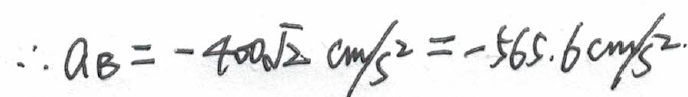 ∴ a_B = -400√2 cm/s² = -565.6 cm/s².